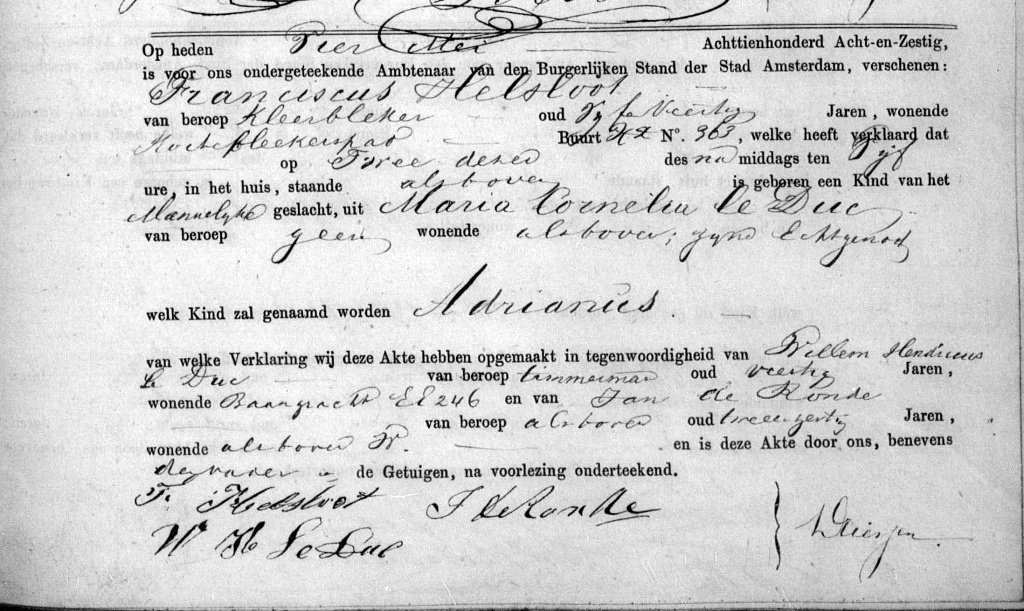 Op heden Vier Mei Achttienhonderd Acht-en-Zestig,
is voor ons ondergeteekende Ambtenaar van den Burgerlijken Stand der Stad Amsterdam, verschenen:
Franciscus Helsloot
van beroep Kleerbleker oud Vyf en Veertig Jaren, wonende
Buurt XX N°. 363, welke heeft verklaard dat
op Twee dezer des na middags ten Vijf
ure, in het huis, staande alsboven is geboren een Kind van het
Mannelyke geslacht, uit Maria Cornelia Le Duc
van beroep geen wonende alsboven; zyne Echtgenoot
welk Kind zal genaamd worden Adrianus
van welke Verklaring wij deze Akte hebben opgemaakt in tegenwoordigheid van Willem Hendricus
Le Duc van beroep timmerman oud veertig Jaren,
wonende Baangracht EE 246 en van Jan de Ronde
van beroep alsboven oud Jaren,
wonende alsboven en is deze Akte door ons, benevens
de vader de Getuigen, na voorlezing onderteekend.
F. Helsloot J de Ronde
W H Le Duc